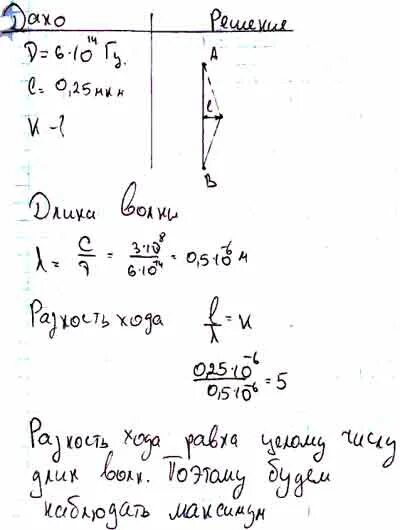 Дано Решение
ν = 6·10¹⁴ Гц.
ℓ = 0,25 мкм
К - ?
A
ℓ
B
Длина волны
λ = C/ν = 3·10⁸/6·10¹⁴ = 0,5·10⁻⁶ м
Разность хода ℓ/λ = к
0,25·10⁻⁶/0,5·10⁻⁶ = 5
Разность хода равна целому числу
длин волн. Поэтому будем
наблюдать максимум